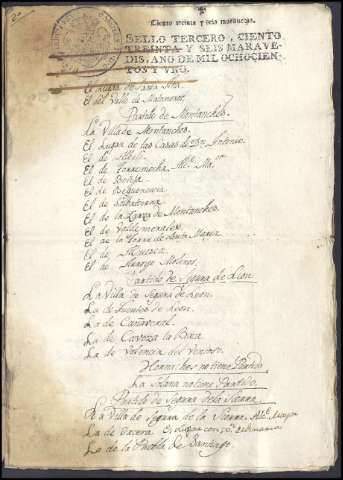 Ciento treinta y seis maravedis.
SELLO TERCERO, CIENTO
TREINTA Y SEIS MARAVE-
DIS, AÑO DE MIL OCHOCIEN-
TOS Y VNO.
El Lugar de Santa Ana
El del Valle de Matamoros
Partido de Montanches.
La Villa de Montanches.
El Lugar de las Casas de Dn. Antonio.
El de
El de Torremocha, Alle. Mayor
El de Botija
El de Benquerencia
El de
El de la Zarza de Montanches
El de Valdemorales
El de la Torre de Santa Maria
El de
El de Arroyo Molinos.
Partido de Segura de Leon
La Villa de Segura de Leon.
La de Fuentes de Leon.
La de Cañaveral.
La de Caveza la Baca
La de Valencia del Ventoso
Hornachos no tiene Partido
La Solana no tiene Partido.
Partido de Segura de la Sierra
La Villa de Segura de la Sierra Alle. Mayor
La de
La de la Puebla de Santiago